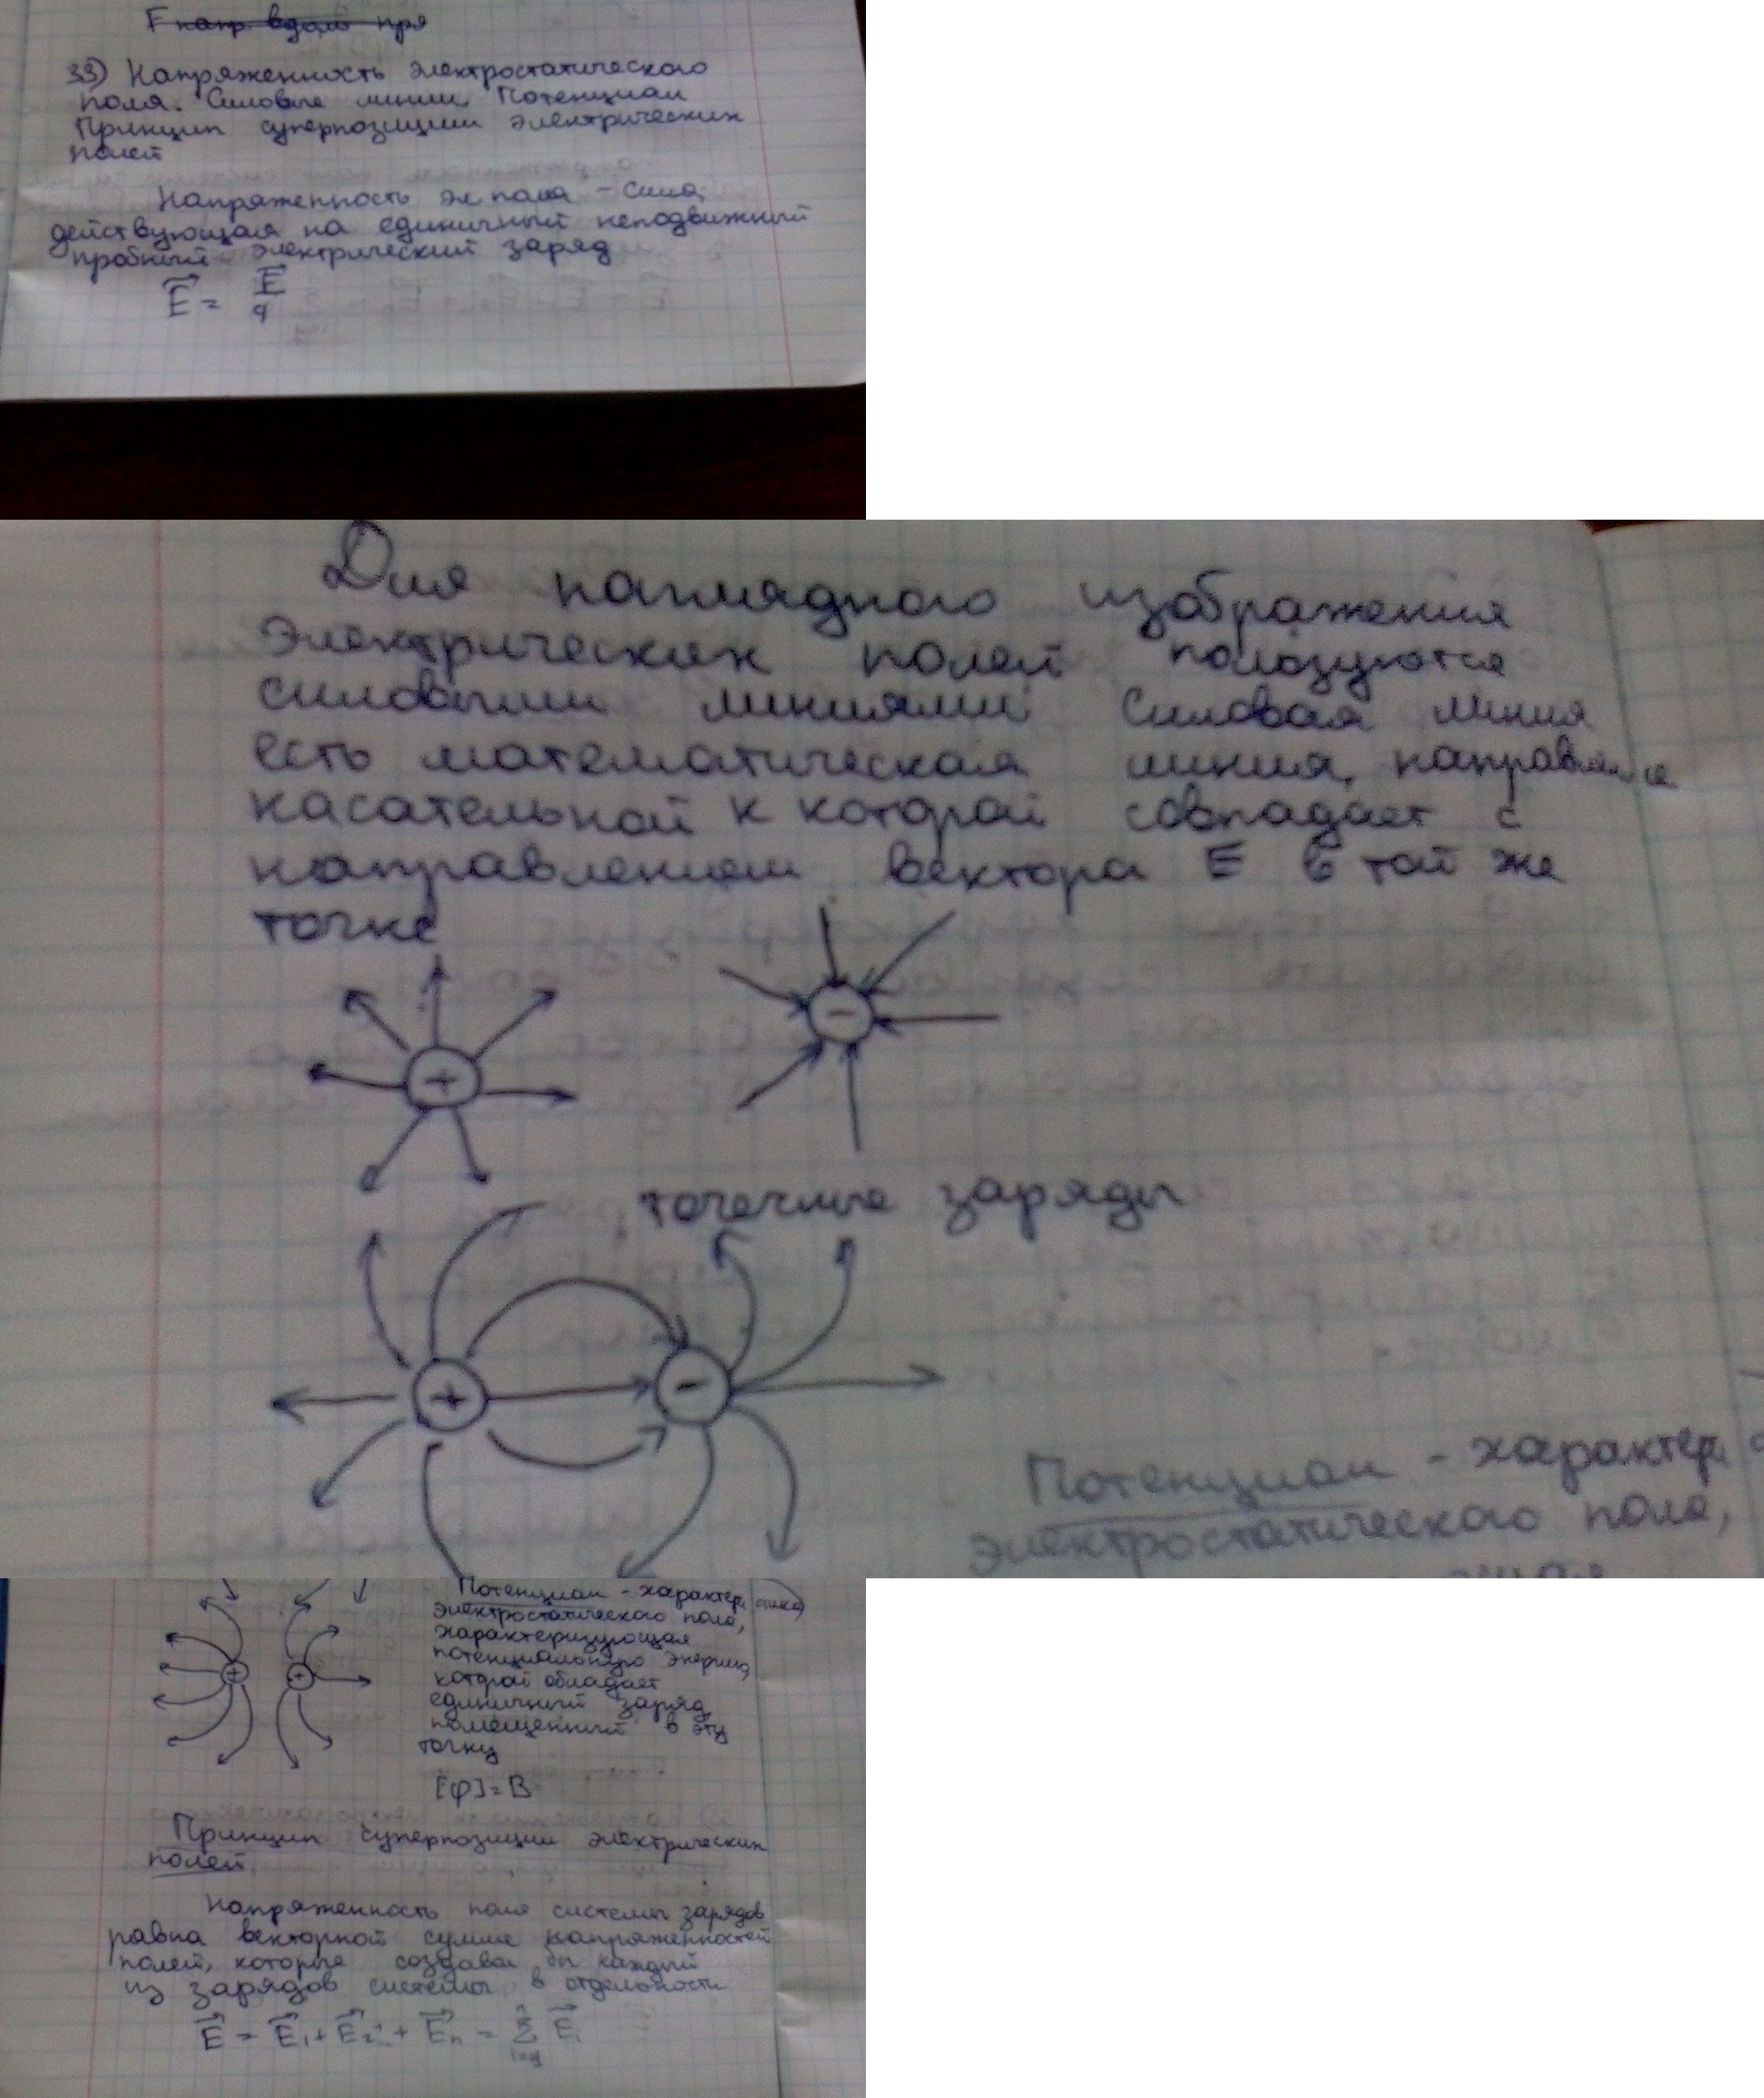 33) Напряженность электростатического
поля. Силовые линии. Потенциал
Принцип суперпозиции электрических
полей
Напряженность эл поля - сила,
действующая на единичный неподвижный
пробный электрический заряд
E = F/q
Для наглядного изображения
электрических полей пользуются
силовыми линиями Силовая линия
есть математическая линия, направление
касательной к которой совпадает с
направлением вектора E в той же
точке
+ -
точечные заряды
+ -
Потенциал - характер
электростатического поля,
Потенциал - характеристика
электростатического поля,
характеризующая
потенциальную энергию,
которой обладает
единичный заряд,
помещенный в эту
точку
+ +
[φ]=В
Принцип суперпозиции электрических
полей.
Напряженность поля системы зарядов
равна векторной сумме напряженностей
полей, которые создавал бы каждый
из зарядов системы в отдельности
E = E₁ + E₂ + ... + Eₙ = Σ Eᵢ